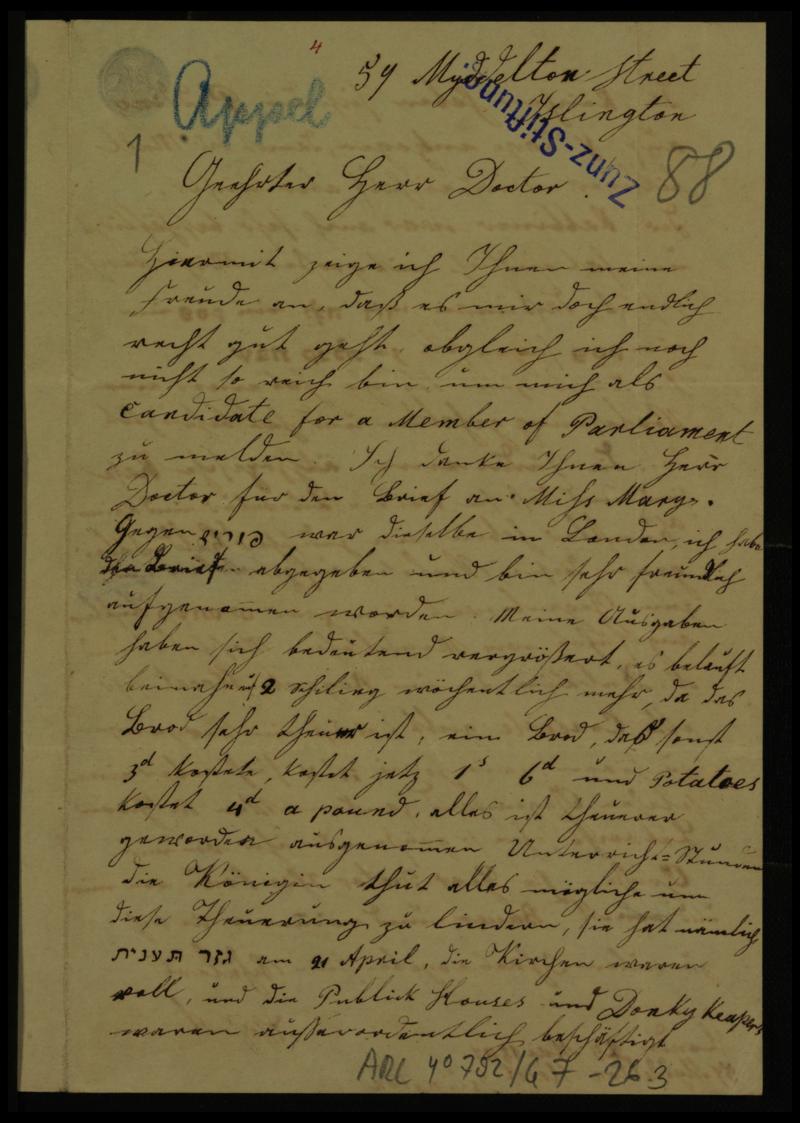 4
59 Myddelton Street
Appel
Islington
Zunz-Stiftung
1
88
Geehrter Herr Doctor.
Hiermit zeige ich Ihnen meine
Freude an, daß es mir doch endlich
recht gut geht, obgleich ich noch
nicht so reich bin um mich als
Candidate for a Member of Parliament
zu melden. Ich danke Ihnen Herr
Doctor für den Brief an Miss
Gegen פורים war dieselbe in London, ich habe
den Brief abgegeben und bin sehr freundlich
aufgenommen worden. Meine Ausgaben
haben sich bedeutend vergrößert, es beläuft
beinahe 2 Schiling wöchentlich mehr, da das
Brod sehr theuer ist, ein Brod, daß sonst
3d kostete, kostet jetz 1s 6d und Potatoes
kostet 4d a pound, alles ist theuerer
geworden ausgenommen Unterrichts=Stunden
die Königin thut alles mögliche um
diese Theuerung zu lindern, sie hat nämlich
גזר תענית am 21 April, die Kirchen waren
voll, und die Publick Houses und Donky Keapers
waren außerordentlich beschäftigt
ARC 4o 792/G 7 - 26.3